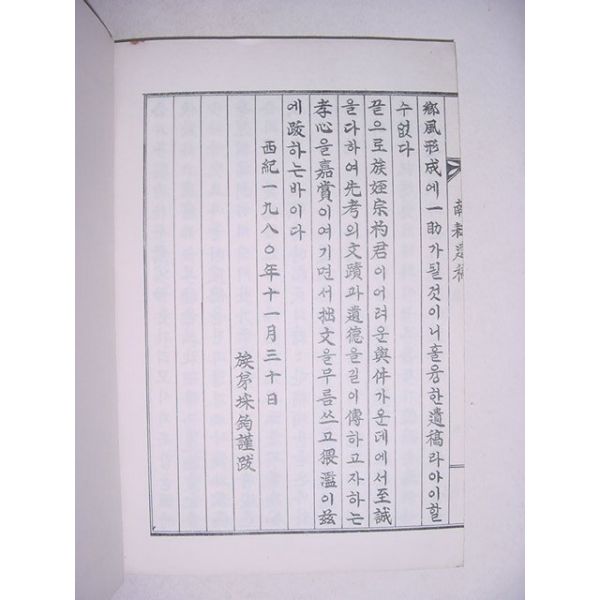 鄕風形成에一助가될것이니훌융한遺稿라아이할
수없다
끝으로族姪宗礿君이어려운與件가운데에서至誠
을다하여先考의文蹟과遺德을길이傳하고자하는
孝心을嘉賞이여기면서拙文을무름쓰고猥濫이玆
에跋하는바이다
西紀一九八〇年十一月三十日
族弟埰筠謹跋
遺稿